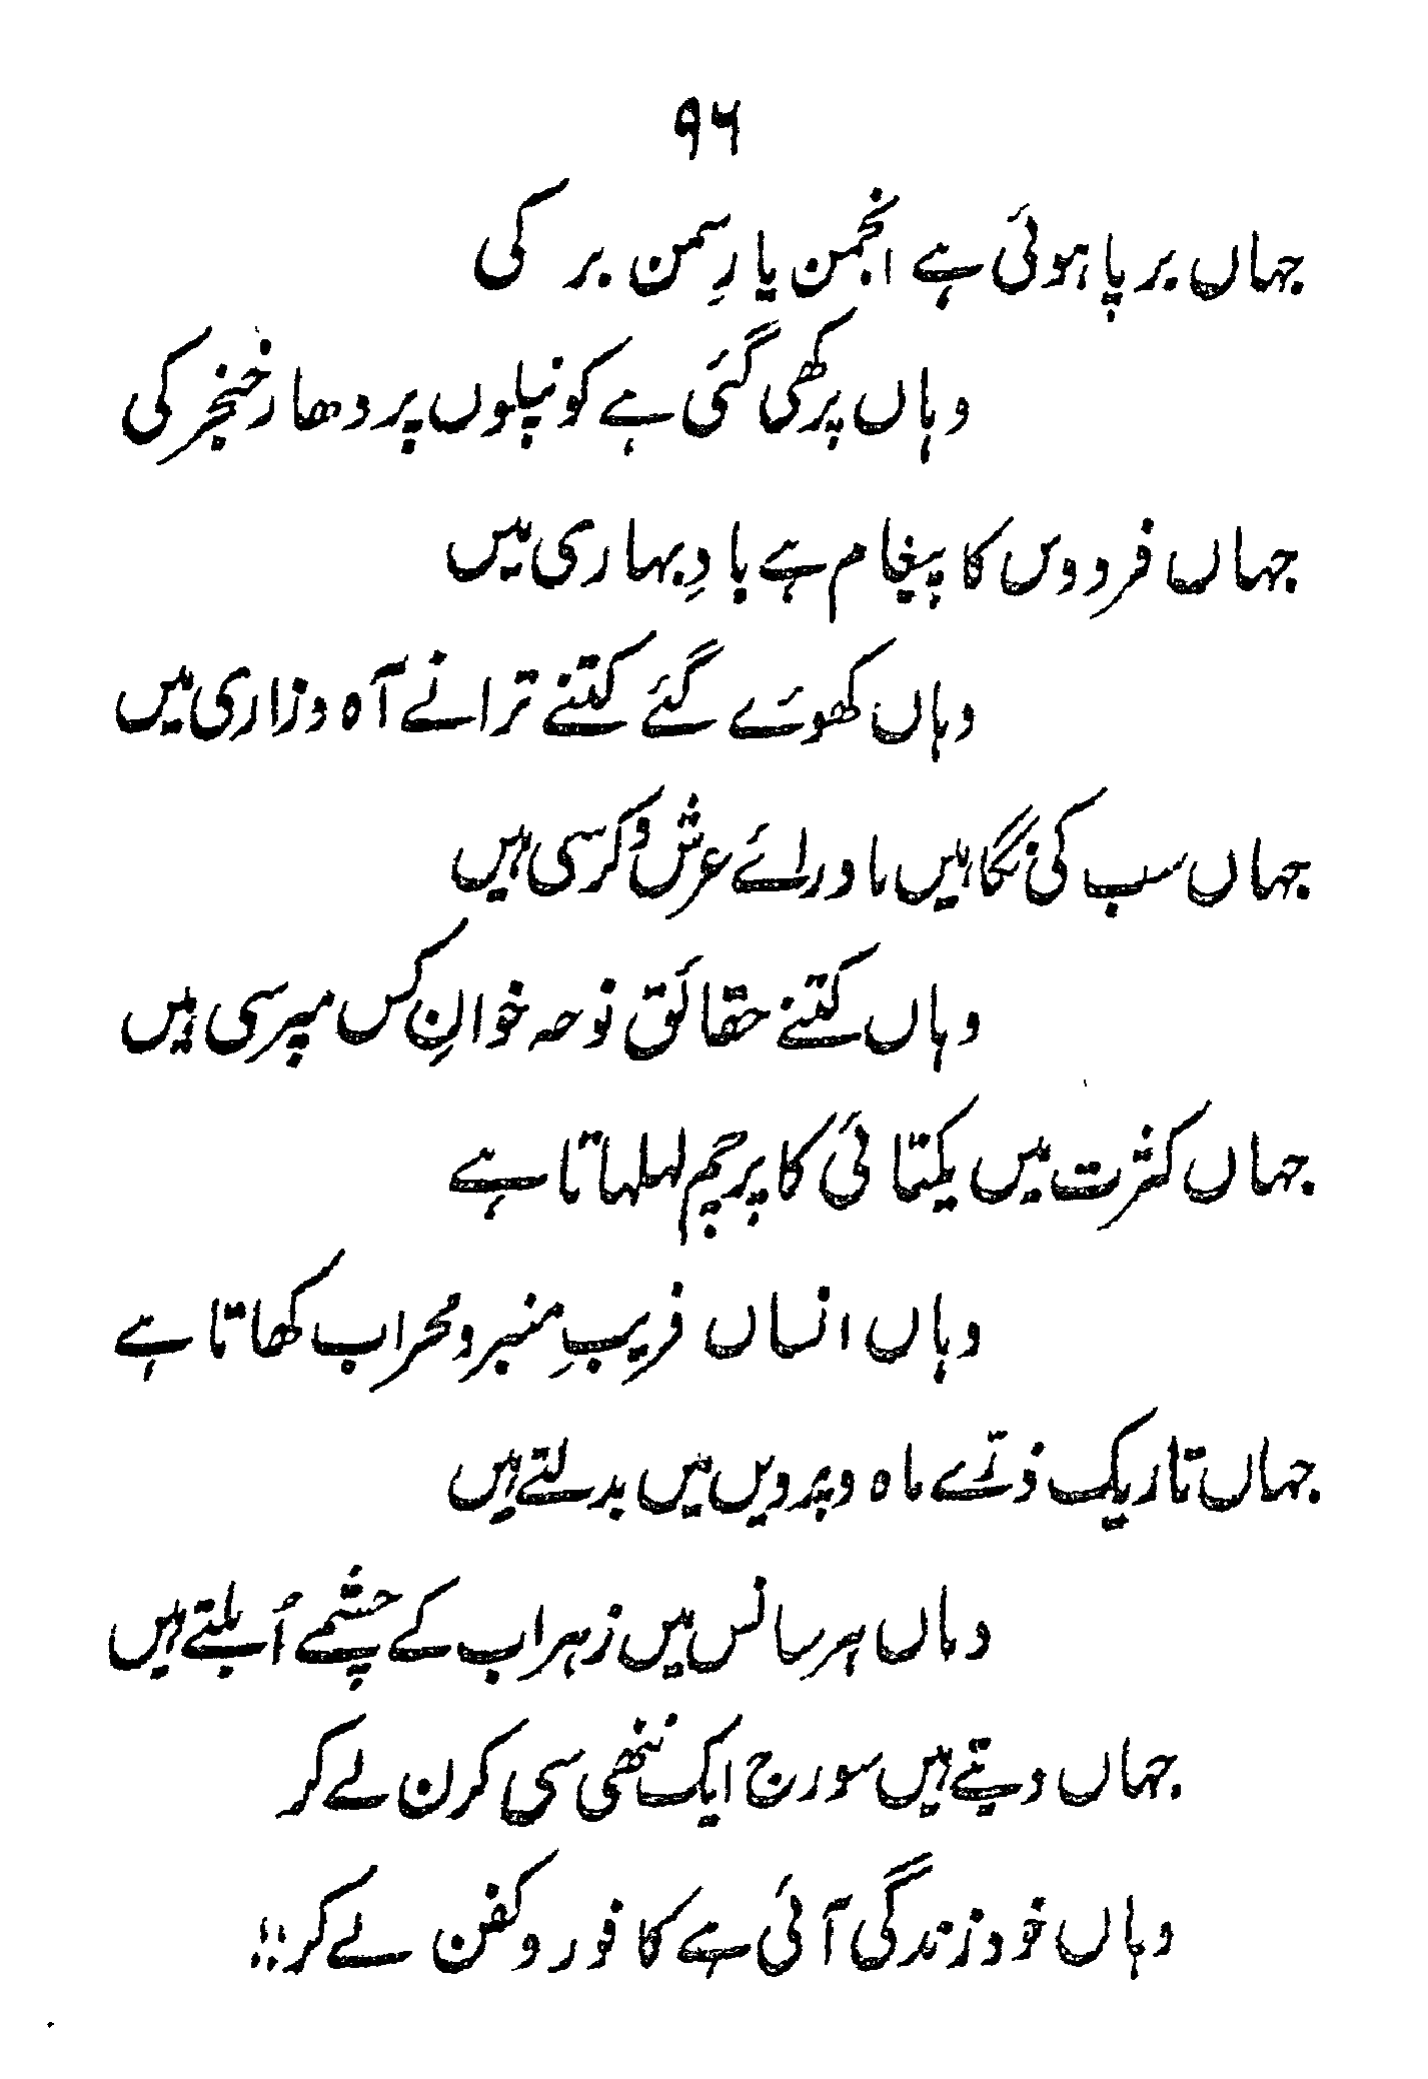 ۹۶
جہاں برپا ہوئی ہے انجمن یارِ سمن بر کی
وہاں پرکھی گئی ہے کونپلوں پر دھار خنجر کی
جہاں فردوس کا پیغام ہے بادِ بہاری میں
وہاں کھوئے گئے کتنے ترانے آہ و زاری میں
جہاں سب کی نگاہیں ماورائے عرش و کرسی ہیں
وہاں کتنے حقائق نوحہ خوانِ کس مپرسی ہیں
جہاں کثرت میں یکتائی کا پرچم لہلہاتا ہے
وہاں انساں فریبِ منبر و محراب کھاتا ہے
جہاں تاریک ذرّے ماہ و پرویں میں بدلتے ہیں
وہاں ہر سانس میں زہراب کے چشمے اُبلتے ہیں
جہاں دیتے ہیں سورج ایک ننھی سی کرن لے کر
وہاں خود زندگی آئی ہے کافور و کفن لے کر!!